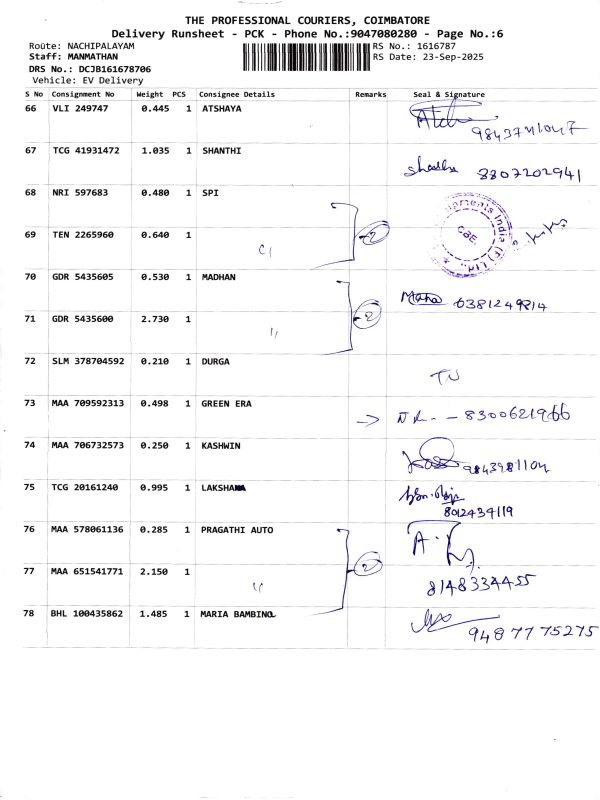 THE PROFESSIONAL COURIERS, COIMBATORE
Delivery Runsheet - PCK - Phone No.:9047080280 - Page No.:6
Route: NACHIPALAYAM
Staff: MANMATHAN
DRS No.: DCJB161678706
Vehicle: EV Delivery
RS No.: 1616787
RS Date: 23-Sep-2025
S No Consignment No Weight PCS Consignee Details Remarks Seal & Signature
66 VLI 249747 0.445 1 ATSHAYA
67 TCG 41931472 1.035 1 SHANTHI 8807202941
68 NRI 597683 0.480 1 SPI
69 TEN 2265960 0.640 1 2 CBE
70 GDR 5435605 0.530 1 MADHAN 6381249814
71 GDR 5435600 2.730 1 2
72 SLM 378704592 0.210 1 DURGA
73 MAA 709592313 0.498 1 GREEN ERA - 8300621966
74 MAA 706732573 0.250 1 KASHWIN 9843981104
75 TCG 20161240 0.995 1 LAKSHANA
8012434119
76 MAA 578061136 0.285 1 PRAGATHI AUTO
77 MAA 651541771 2.150 1 2 8148334455
78 BHL 100435862 1.485 1 MARIA BAMBINO 9487775275